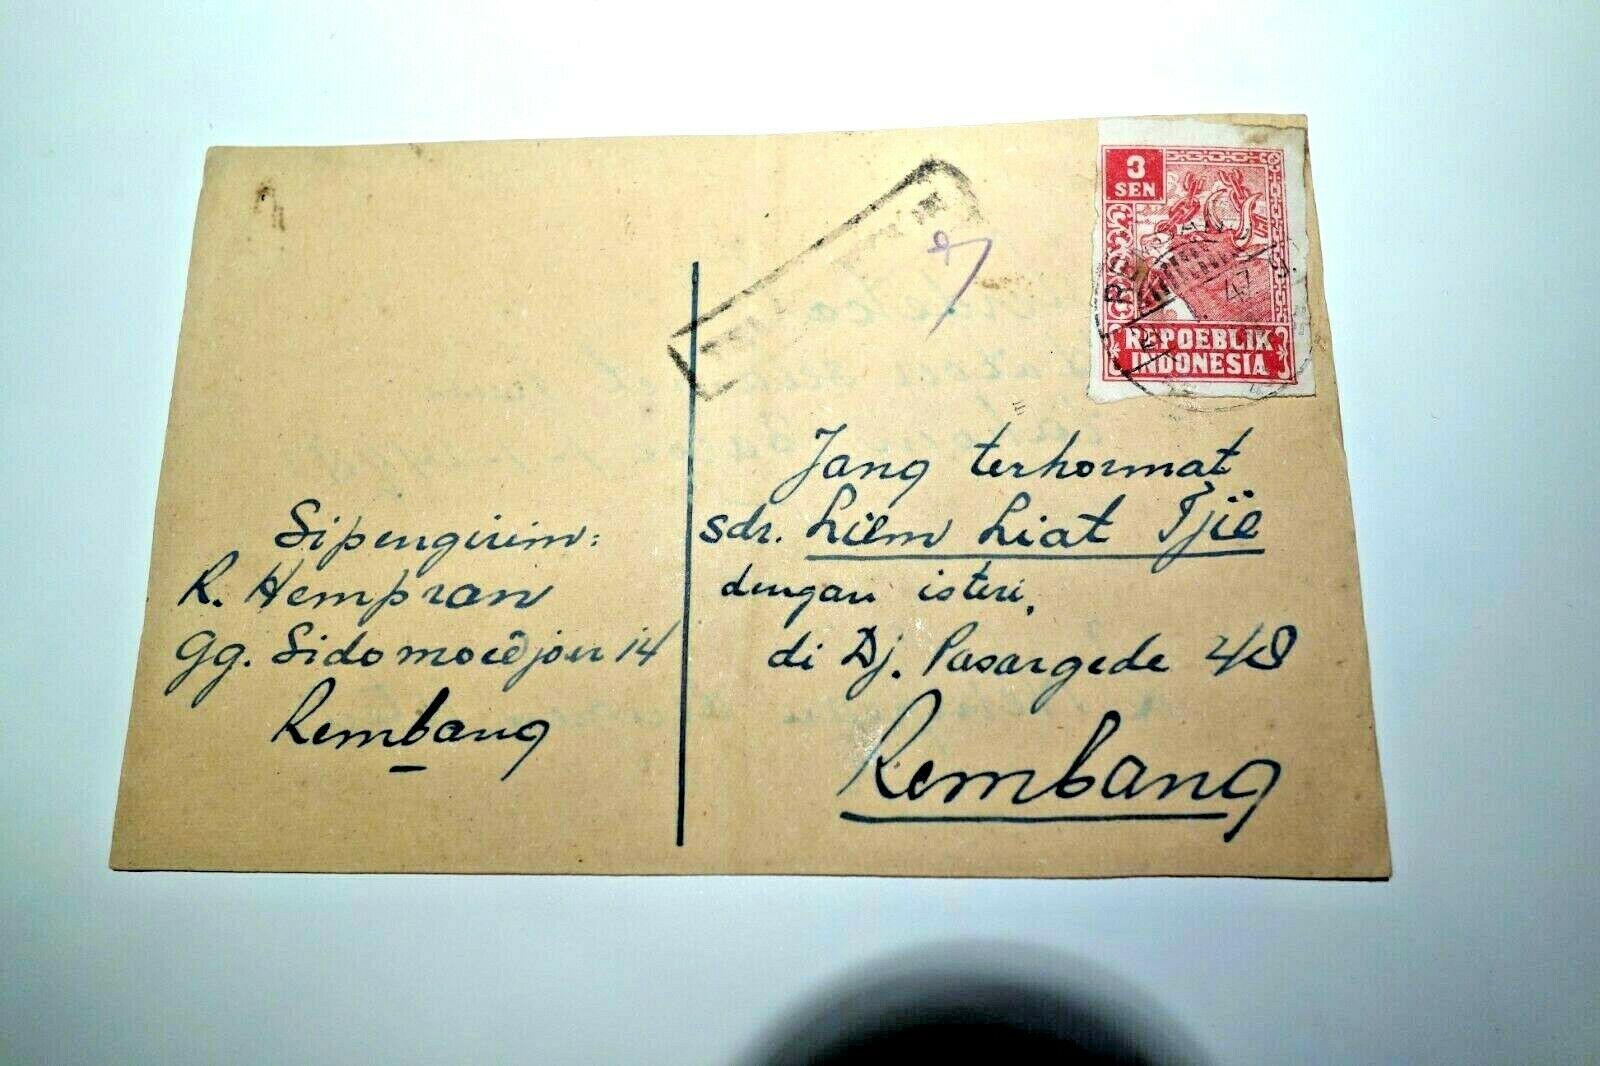 3
SEN
REPOEBLIK
INDONESIA
47
Jang terhormat
sdr. Liem Liat Tjië
dengan isteri,
di Dj. Pasargede 48
Rembang
Sipengirim:
R. Hempran
Gg. Sidomoedjoer 14
Rembang